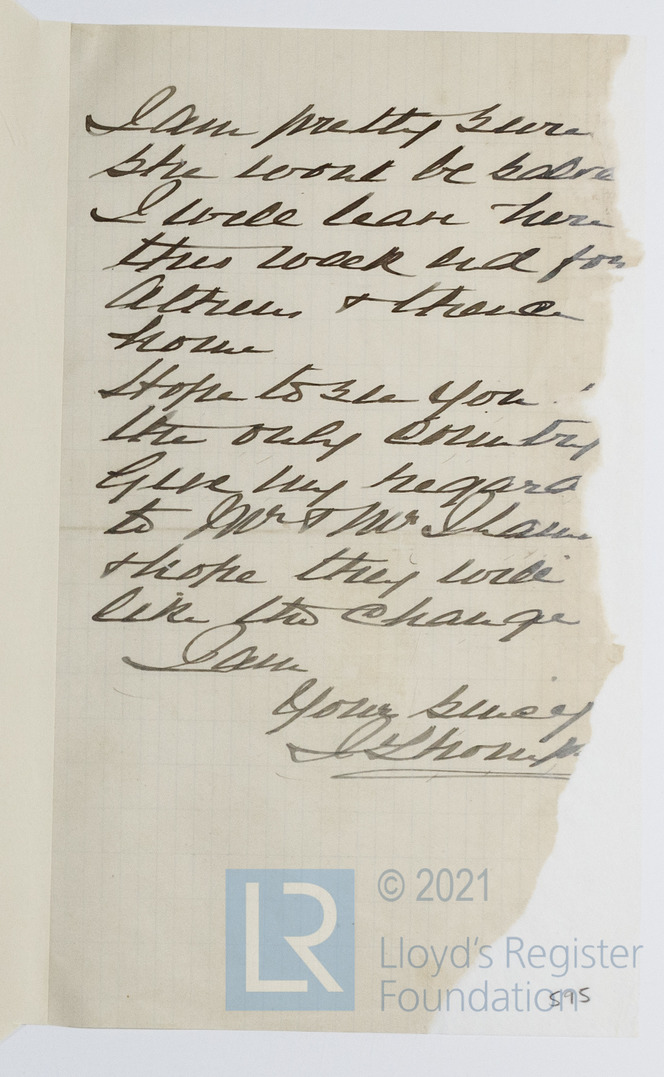 I am pretty sure
she wont be
I will leave here
this week end for
Athens & thence
home
Hope to see you
the only country
Give my regard
to Mr & Mrs
& hope they will
like the change
I am
Yours
© 2021
LR
Lloyd's Register
Foundation
595